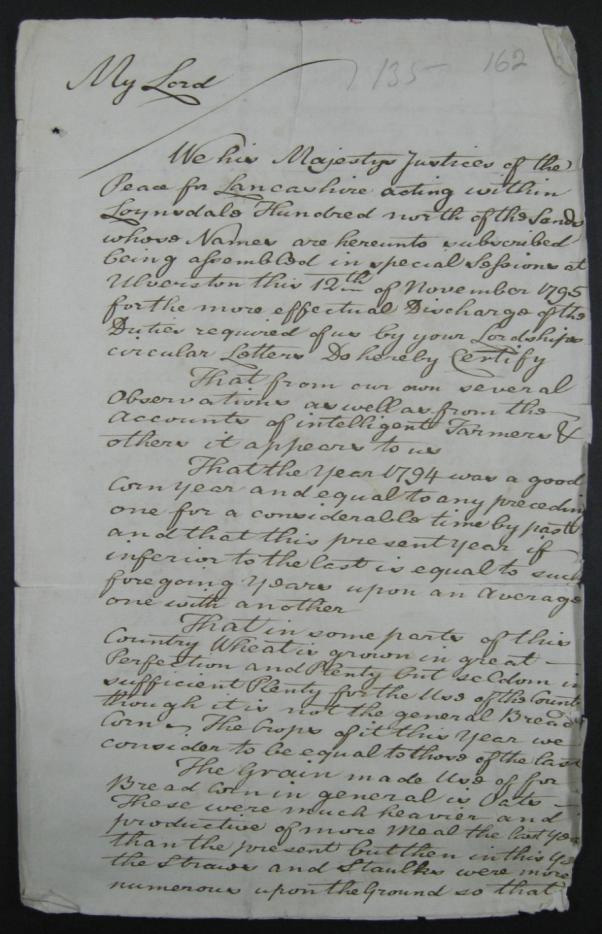 135 162
My Lord
We his Majestys Justices of the
Peace for Lancashire acting within
Loynsdale Hundred north of the Sands
whose Names are hereunto subscribed
being assembled in special Sessions at
Ulverston this 12th of November 1795
for the more effectual Discharge of the
Duties required of us by your Lordships
circular Letters Do hereby Certify
That from our own several
Observations as well as from the
Accounts of intelligent Farmers &
others it appears to us
That the Year 1794 was a good
Corn Year and equal to any preceding
one for a considerable time by past
and that this present Year if
inferior to the last is equal to such
foregoing Years upon an Average
one with another
That in some parts of this
Country Wheat is grown in great
Perfection and Plenty but seldom in
sufficient Plenty for the Use of the Count
though it is not the general Bread
Corn. The Crops of it this Year we
consider to be equal to those of the last
The Grain made Use of for
Bread Corn in general is Oats
These were much heavier and
productive of more Meal the last Yea
than the present but then in this Ye
the Straws and Staulks were more
numerous upon the Ground so that